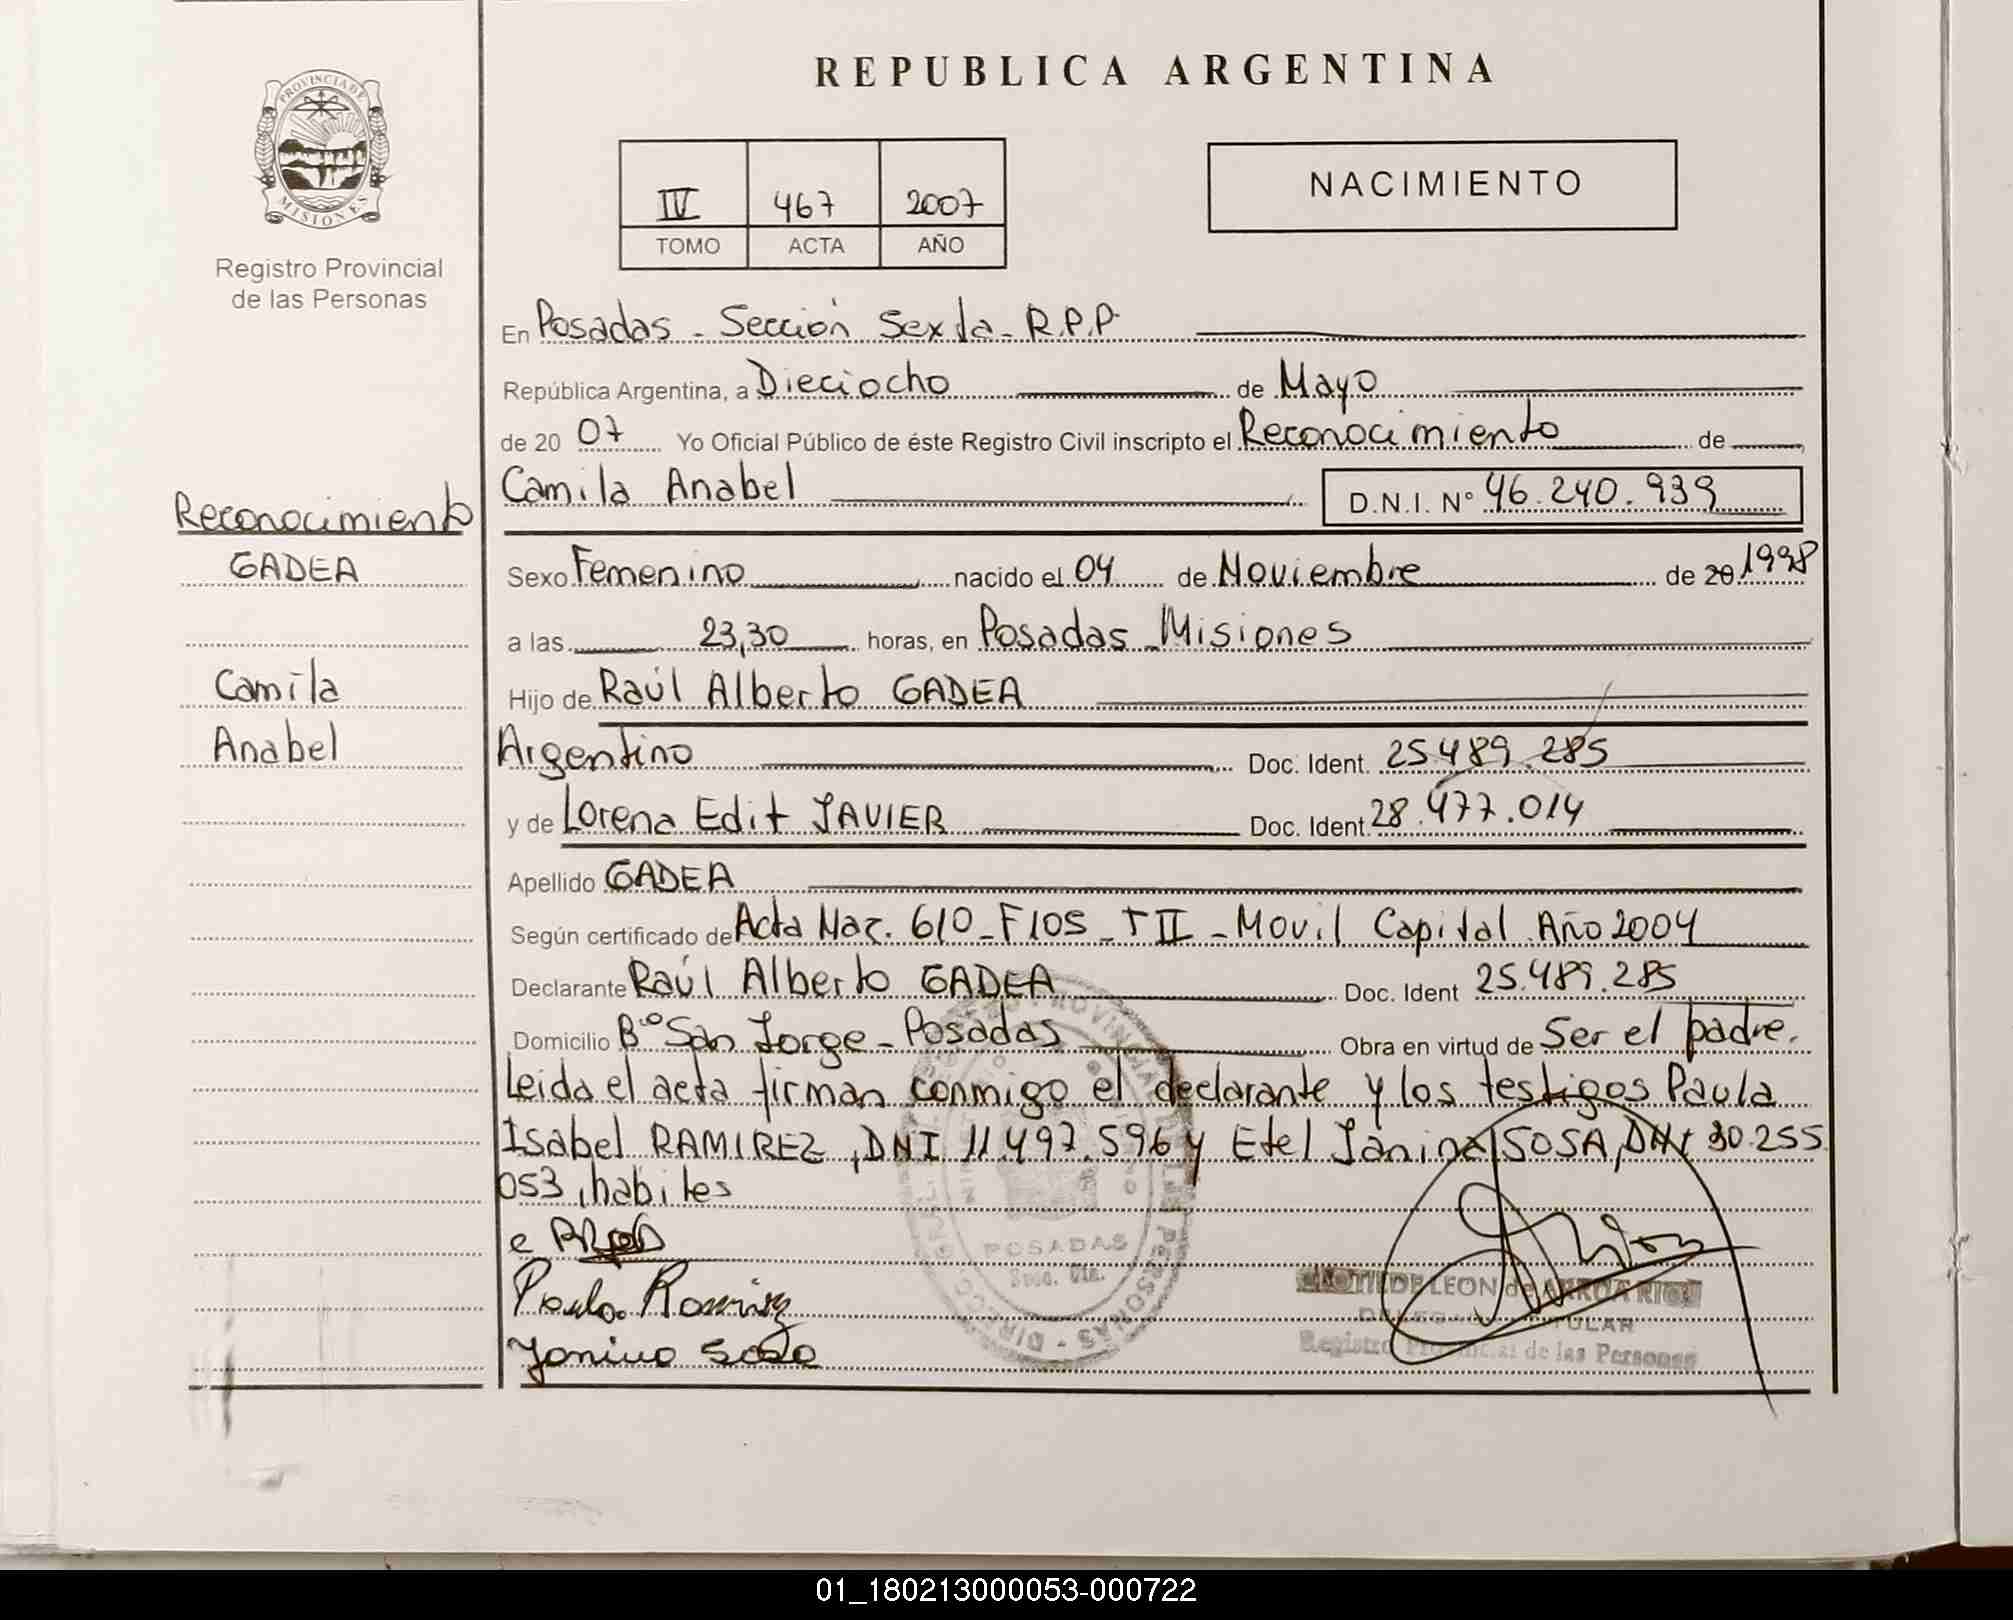 PROVINCIA DE
MISIONES
Registro Provincial
de las Personas
REPUBLICA ARGENTINA
IV 467 2007
TOMO ACTA AÑO
NACIMIENTO
En Posadas - Sección Sexta - R.P.P
República Argentina, a Dieciocho de Mayo
de 20 07 Yo Oficial Público de éste Registro Civil inscripto el Reconocimiento de
Camila Anabel D.N.I. N° 46.240.939
Reconocimiento
GADEA
Camila
Anabel
Sexo Femenino nacido el 04 de Noviembre de 20 1998
a las 23,30 horas, en Posadas - Misiones
Hijo de Raúl Alberto GADEA
Argentino Doc. Ident. 25.489.285
y de Lorena Edit JAVIER Doc. Ident. 28.477.014
Apellido GADEA
Según certificado de Acta Nac. 610 - F105 - T II - Movil Capital Año 2004
Declarante Raúl Alberto GADEA Doc. Ident 25.489.285
Domicilio B° San Jorge - Posadas Obra en virtud de Ser el padre.
Leida el acta firman conmigo el declarante y los testigos Paula
Isabel RAMIREZ, DNI 11.497.596 y Etel Janina SOSA, DNI 30.255
053, habiles
Paula Ramirez
Janina Sosa
POSADAS
Secc. 6ta.
LEON de
TITULAR
Registro Provincial de las Personas
01_180213000053-000722